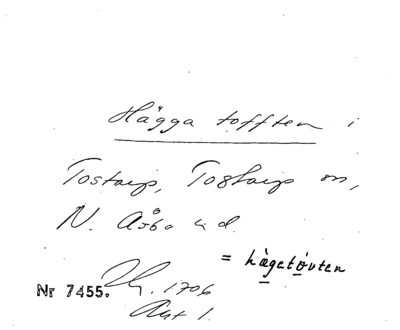 Hägga tofften i
Tostarp, Tostarp sn,
N. Åsbo hd.
= hägetòvten
Nr 7455. 1706
Akt 1.